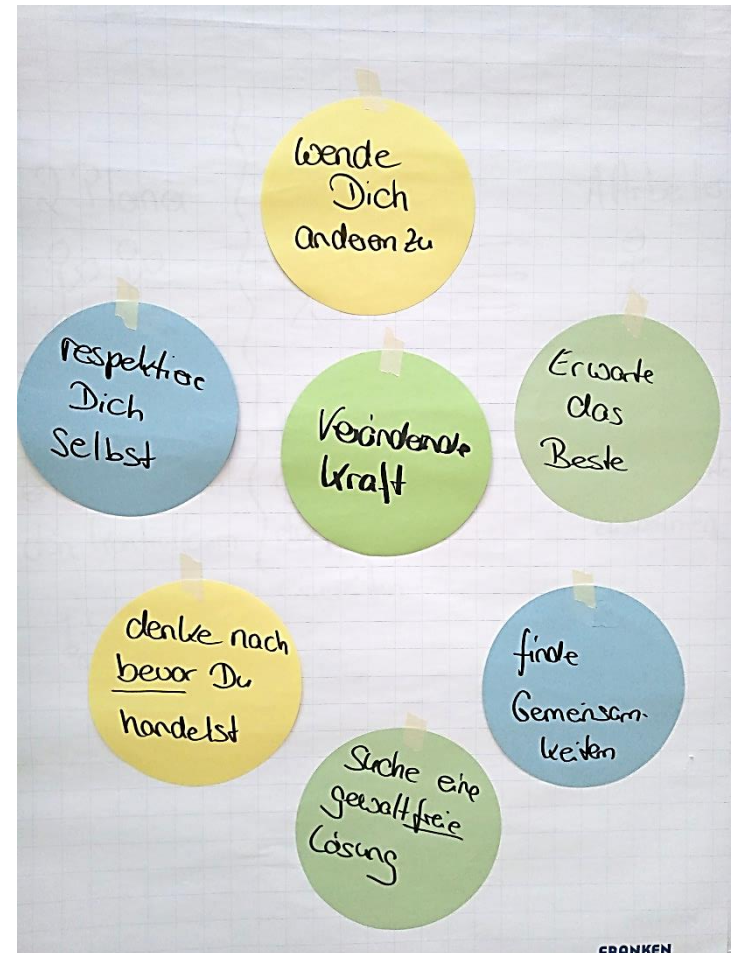 wende
Dich
anderen zu
respektiere
Dich
Selbst
Verändernde
Kraft
Erwarte
das
Beste
denke nach
bevor Du
handelst
finde
Gemeinsam-
keiten
Suche eine
gewaltfreie
Lösung
FRANKEN